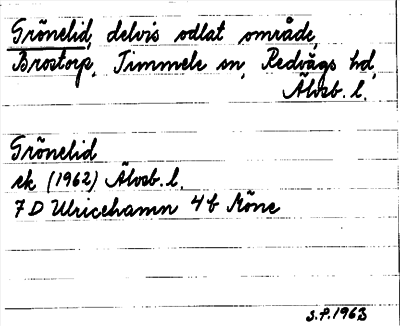 Grönelid, delvis odlat område,
Brostorp, Timmele sn, Redvägs hd,
Älvsb. l.
Grönelid
ek (1962) Älvsb. l.
7 D Ulricehamn 4 b Röne
S.P. 1963